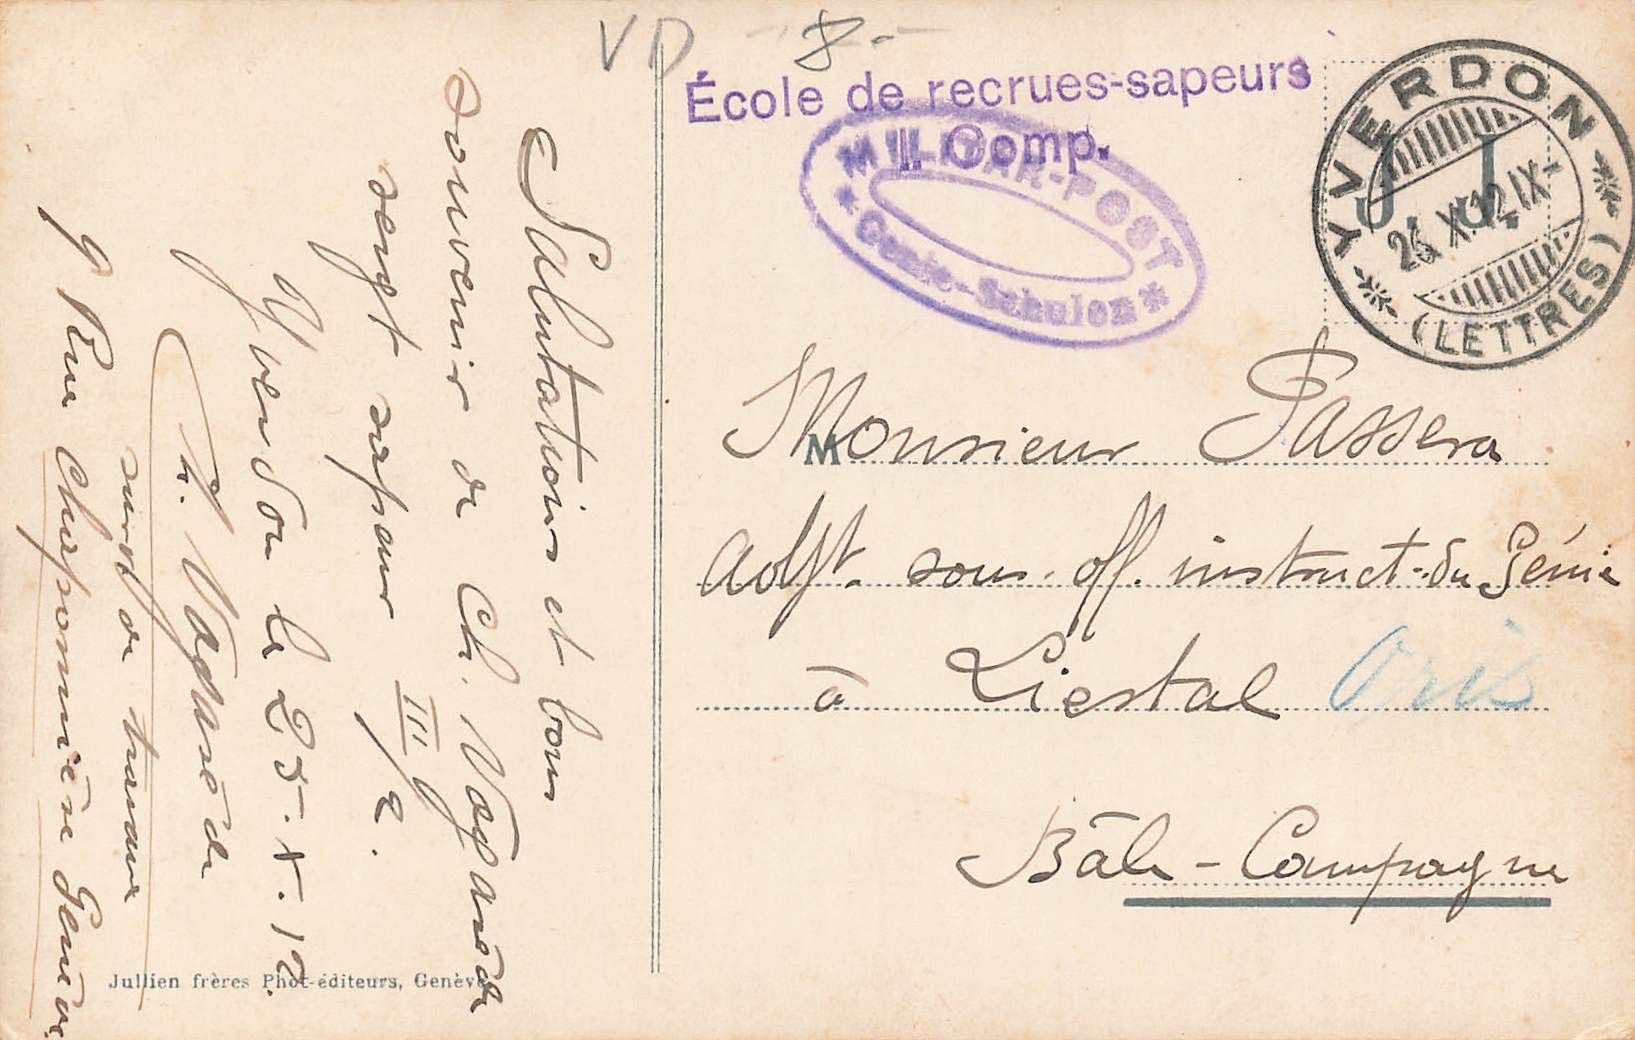 VD 8.-
École de recrues-sapeurs
II. Comp.
MILITÄR-POST
* Genie-Schulen *
YVERDON
26. X. 12. IX-
(LETTRES)
J. J.
Salutations et bons
souvenir de Ch.
sergt sapeur III/2.
Yverdon le 25. X. 12.
surv de travaux
9 Rue Chaponnière Genève
M
Monsieur Passera
Adjt. sous-off. instruct. du Génie
à Liestal
Bâle-Campagne
Jullien frères Phot-éditeurs, Genève